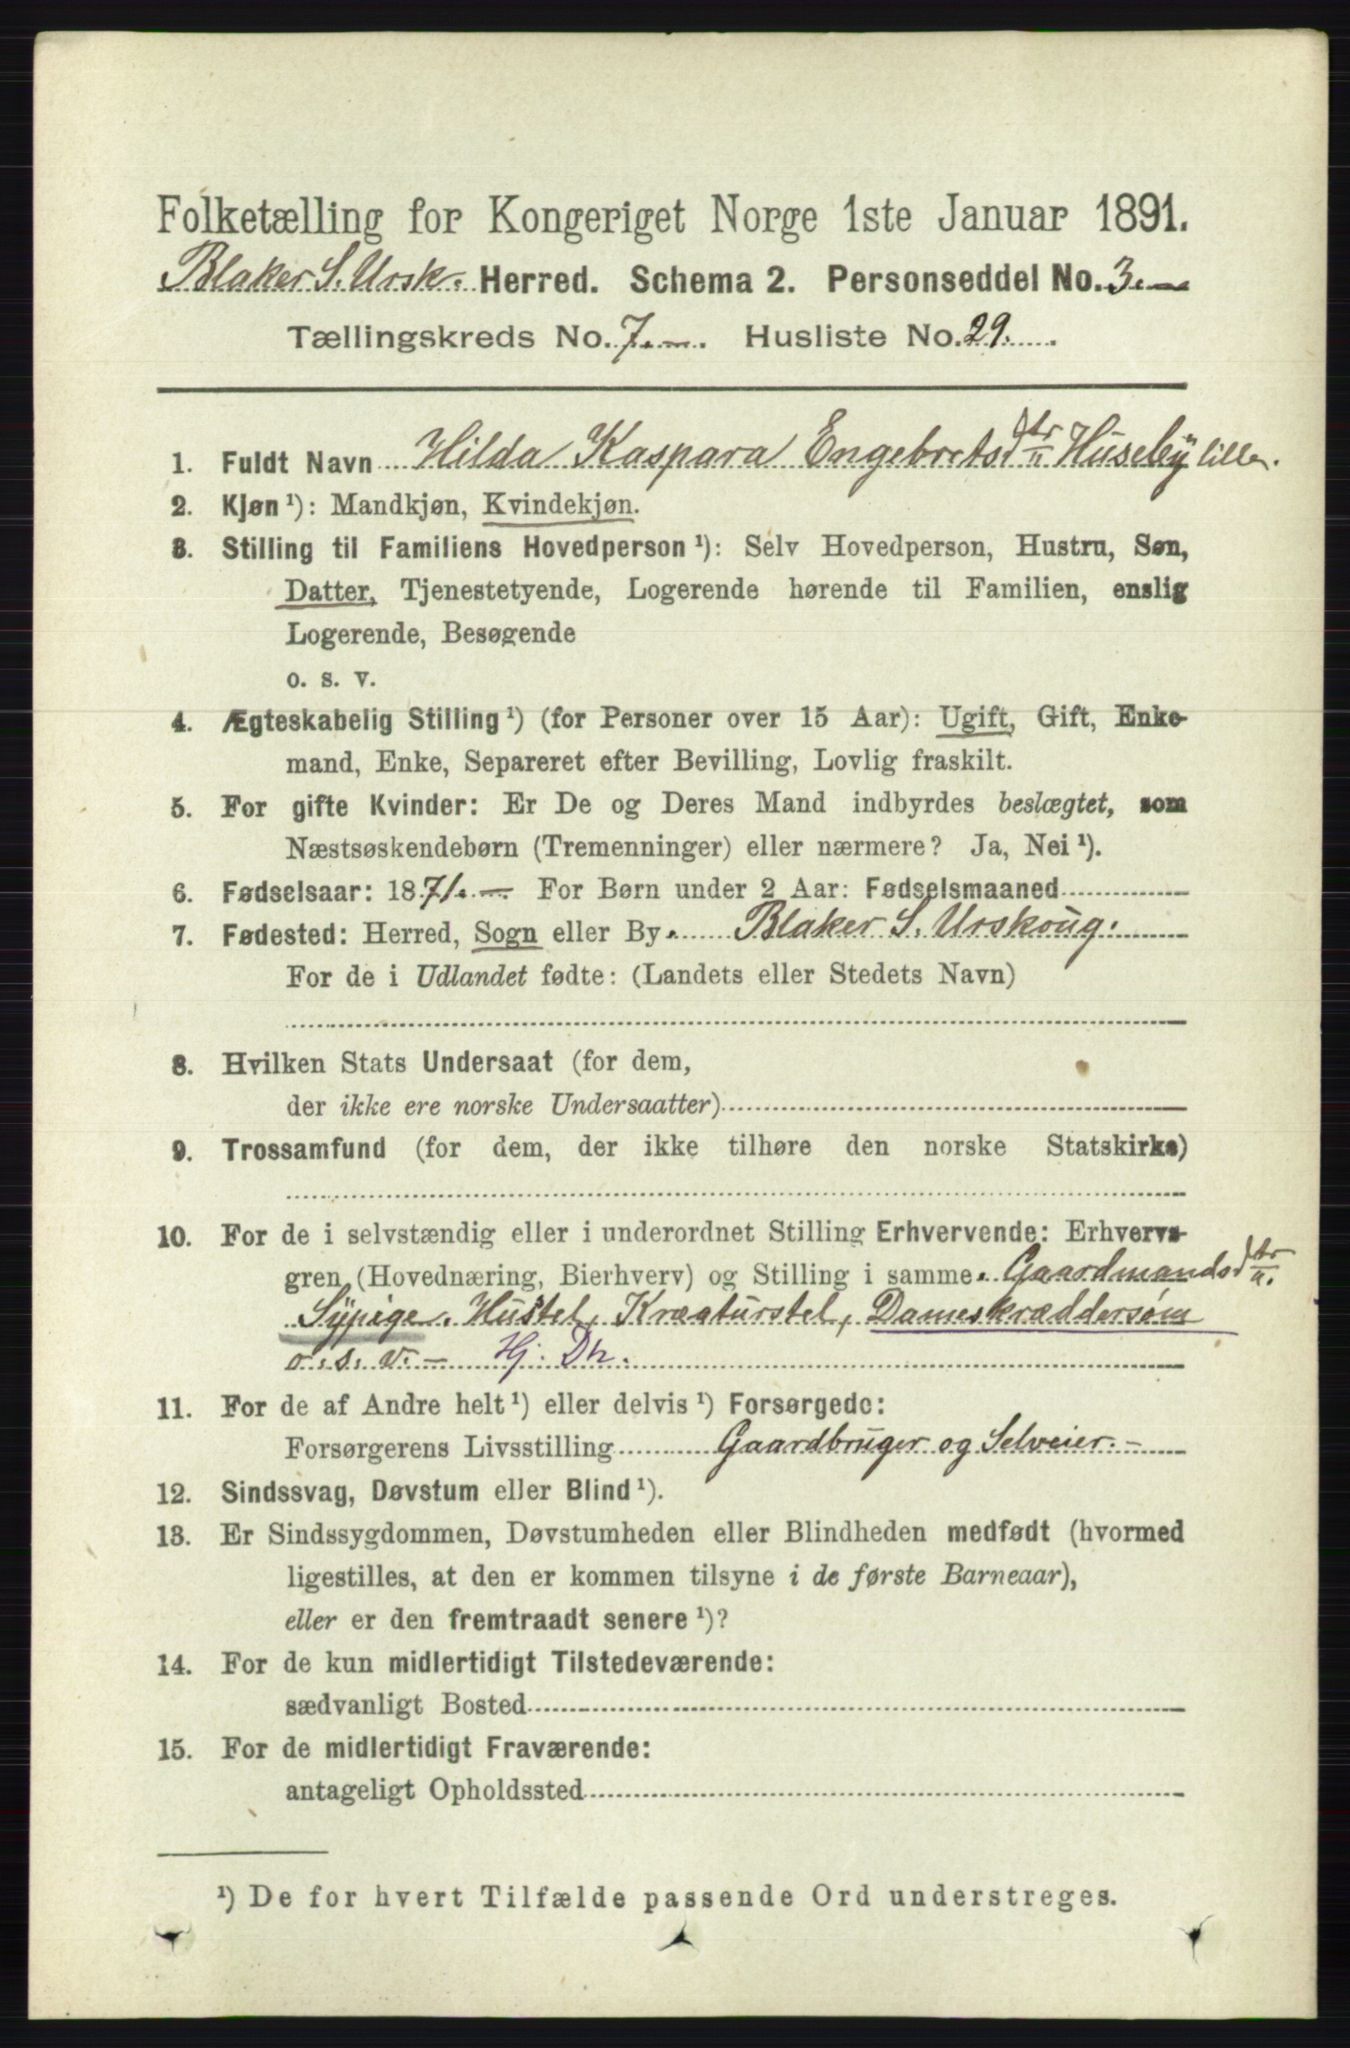 Folketælling for Kongeriget Norge 1ste Januar 1891.
Blaker S. Ursk. Herred. Schema 2. Personseddel No. 3.—
Tællingskreds No. 7.—. Husliste No. 29.
1. Fuldt Navn Hilda Kaspara Engebretsdtr Huseby lille.
2. Kjøn ¹): Mandkjøn, Kvindekjøn.
3. Stilling til Familiens Hovedperson ¹): Selv Hovedperson, Hustru, Søn,
Datter, Tjenestetyende, Logerende hørende til Familien, enslig
Logerende, Besøgende
o. s. v.
4. Ægteskabelig Stilling ¹) (for Personer over 15 Aar): Ugift, Gift, Enke-
mand, Enke, Separeret efter Bevilling, Lovlig fraskilt.
5. For gifte Kvinder: Er De og Deres Mand indbyrdes beslægtet, som
Næstsøskendebørn (Tremenninger) eller nærmere? Ja, Nei ¹).
6. Fødselsaar: 1871.— For Børn under 2 Aar: Fødselsmaaned
7. Fødested: Herred, Sogn eller By. Blaker S. Urskoug.
For de i Udlandet fødte: (Landets eller Stedets Navn)
8. Hvilken Stats Undersaat (for dem,
der ikke ere norske Undersaatter)
9. Trossamfund (for dem, der ikke tilhøre den norske Statskirke)
10. For de i selvstændig eller i underordnet Stilling Erhvervende: Erhvervs-
gren (Hovednæring, Bierhverv) og Stilling i samme. Gaardmandsdtr.
Sÿpige. Hustel, Kræaturstel, Dameskræddersøm
o. s. v. — Hj. Dtr.
11. For de af Andre helt ¹) eller delvis ¹) Forsørgede:
Forsørgerens Livsstilling Gaardbruger og Selveier.—
12. Sindssvag, Døvstum eller Blind ¹).
13. Er Sindssygdommen, Døvstumheden eller Blindheden medfødt (hvormed
ligestilles, at den er kommen tilsyne i de første Barneaar),
eller er den fremtraadt senere ¹)?
14. For de kun midlertidigt Tilstedeværende:
sædvanligt Bosted
15. For de midlertidigt Fraværende:
antageligt Opholdssted
¹) De for hvert Tilfælde passende Ord understreges.